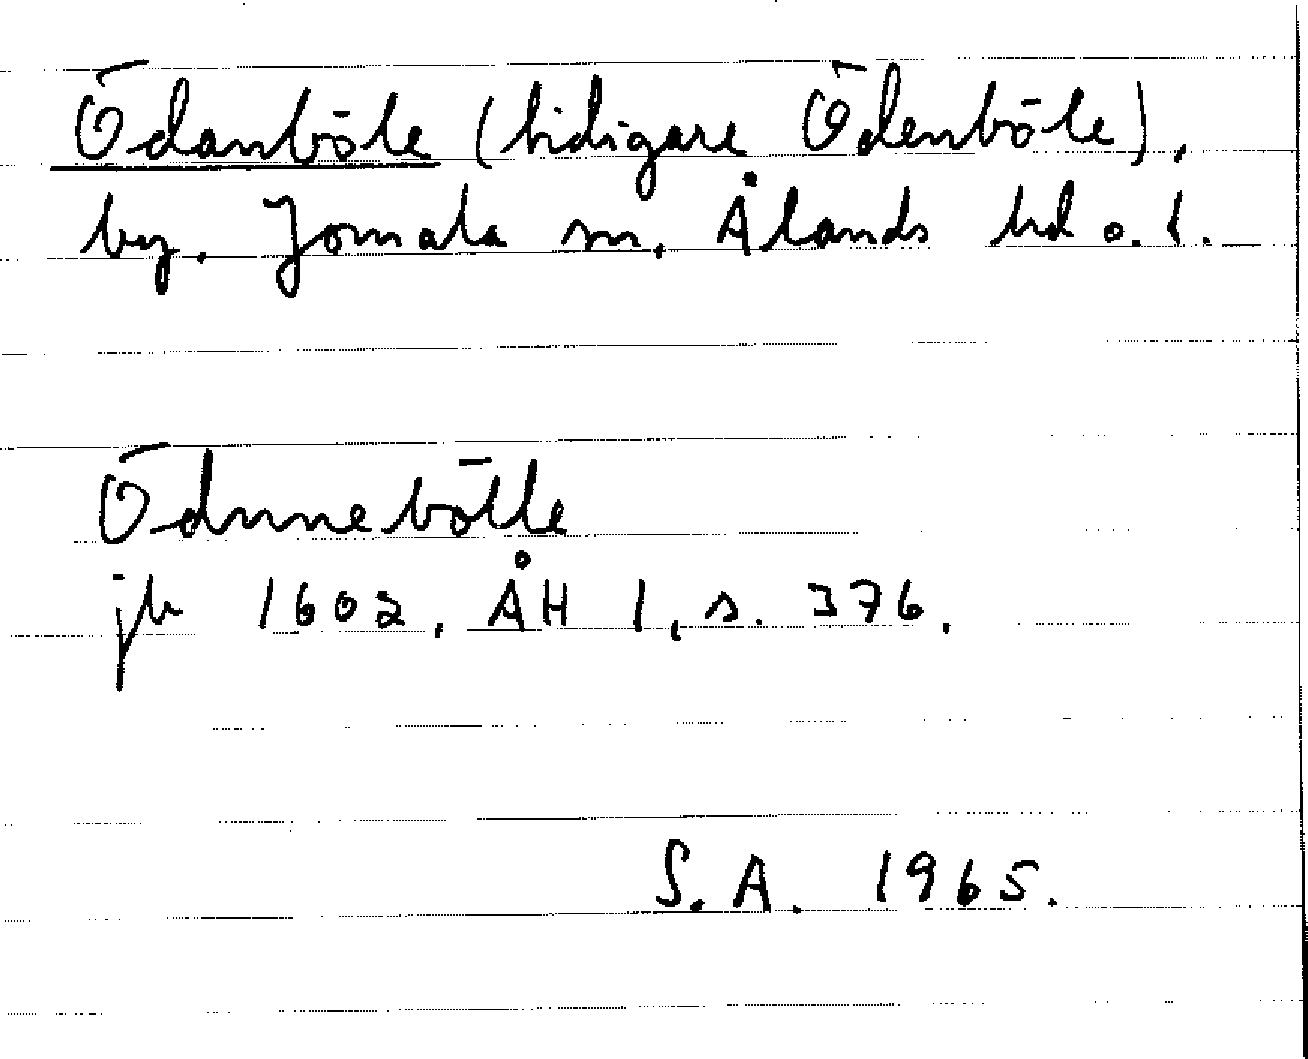 Ödanböle (tidigare Ödenböle),
by. Jomala sn. Ålands hd o. l.
Ödnnebölle
jb 1602. ÅH 1, s. 376.
S.A. 1965.